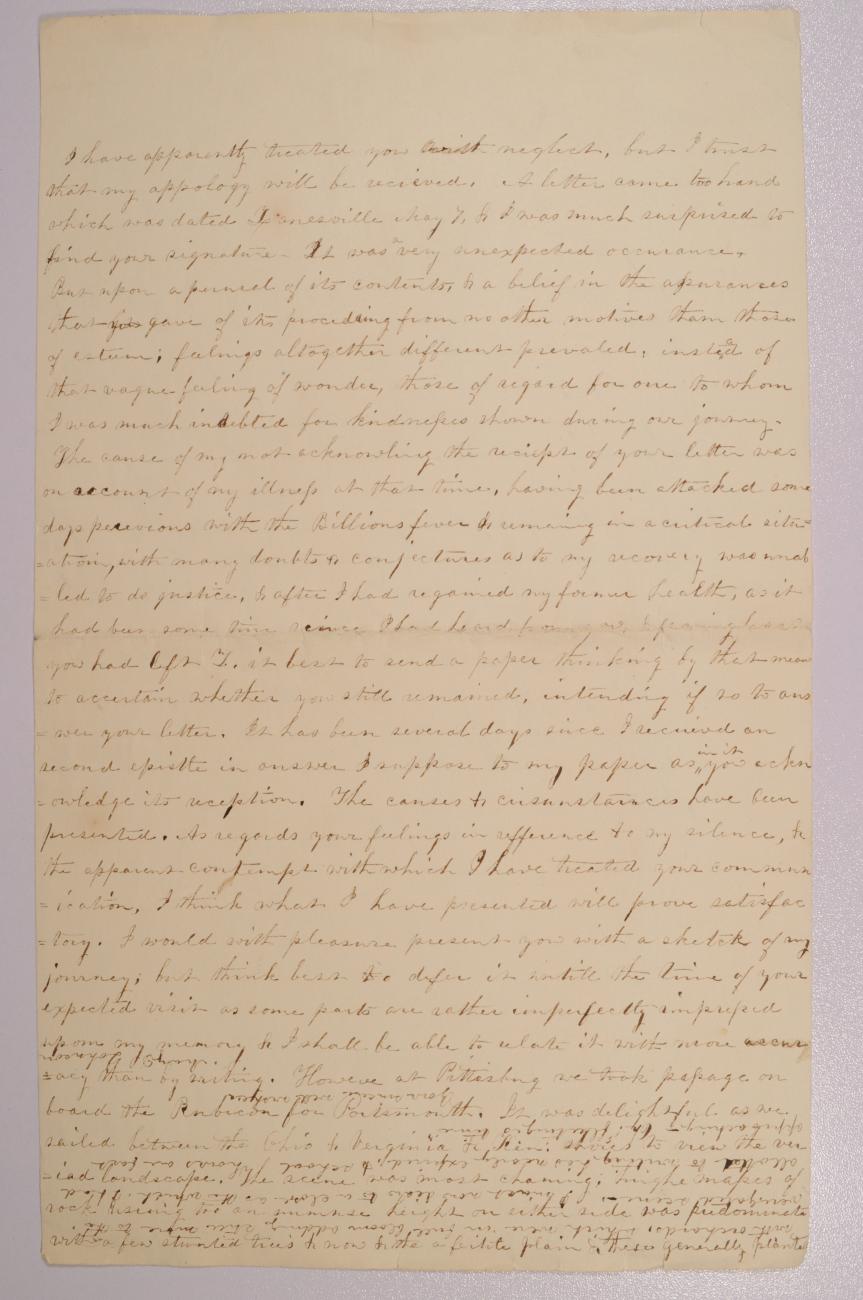 I have apparently treated you with neglect, but I trust
that my appology will be recieved. A letter came too hand
which was dated Zanesville May 7, & I was much surprised to
find your signature - It was a very unexpected occurance.
But upon a perusal of its contents, & a belief in the assurances
that gave of its proceding from no other motives than those
of esteem; feelings altogether different prevaled, insted of
that vague feeling of wonder, those of regard for one to whom
I was much indebted for kindnesses shown during our journey.
The cause of my not acknowling the reciept of your letter was
on account of my illness at that time, having been attacked some
days perevious with the Billious fever & remaing in a critical situ=
=ation, with many doubts & conjectures as to my recovery was unab
=led to do justice, & after I had regained my former health, as it
had been some time since I had heard from you, & fearing
you had left Z. it best to send a paper thinking by that mean
to accertain whether you still remained, intending if so to ans
=wer your letter. It has been several days since I recieved an
second epistle in answer I suppose to my paper as in it you ackn
=owledge its reception. The causes & circumstances have been
presented. As regards your feelings in refference to my silence, &
the apparent contempt with which I have treated your commun
=ication, I think what I have presented will prove satisfac
=tory. I would with pleasure present you with a sketch of my
journey; but think best to defer it untill the time of your
expected visit as some parts are rather imperfectly impressed
upon my memory & I shall be able to relate it with more accur
=acy than by writing. However at Pittsburg we took passage on
board the Rubicon for Portsmouth. It was delightful as we
sailed between the Ohio & Verginia & Ken. shores to view the ver
=iad landscape. The scene was most chaming; hughe masses of
rock rising to an immense height on either side was predominate
with a few stunted trees & now & the a fertile plain & these generally plante
with orchards which were in full bloom adding new